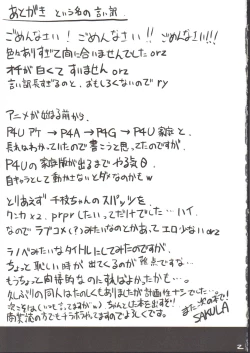 あとがき という名の言い訳
ごめんなさい！ごめんなさい!! ごめんなさい!!!
色々ありすぎて間に合いませんでしたorz
オチが白くて すいません orz
言い訳長すぎるのと、おもしろくないので ry
アニメが始まる前から、
P4U アケ → P4A → P4G → P4U 家庭と、
長れはわかっていたので書こうと思ってたのですが、
P4Uの家庭版が出るまで やる気0
自キャラとして動かさないとダメなのかもw
とりあえず 千枝ちゃんのスパッツを
クンカ×2、prprしたいってだけでした… ハイ
なので ラブコメ(?)みたいなのとかあって エロ少ないorz
ラノベみたいなタイトルにしてみたのですが、
ちょっと恥しい時が出てくるのが 難点ですな…
もうちょっと向
久しぶりの同人はたのしくもありましたが計画性ナシでした…
次こそはしい
SAKULA
2